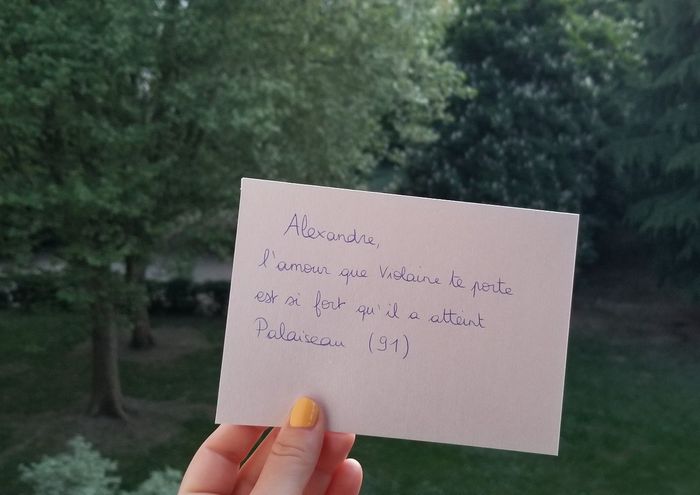 Alexandre,
l'amour que Violaine te porte
est si fort qu'il a atteint
Palaiseau (91)